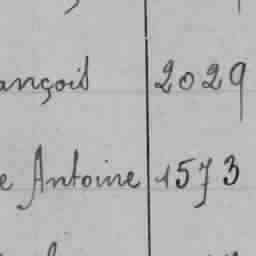 ançois 2029
e Antoine 1573